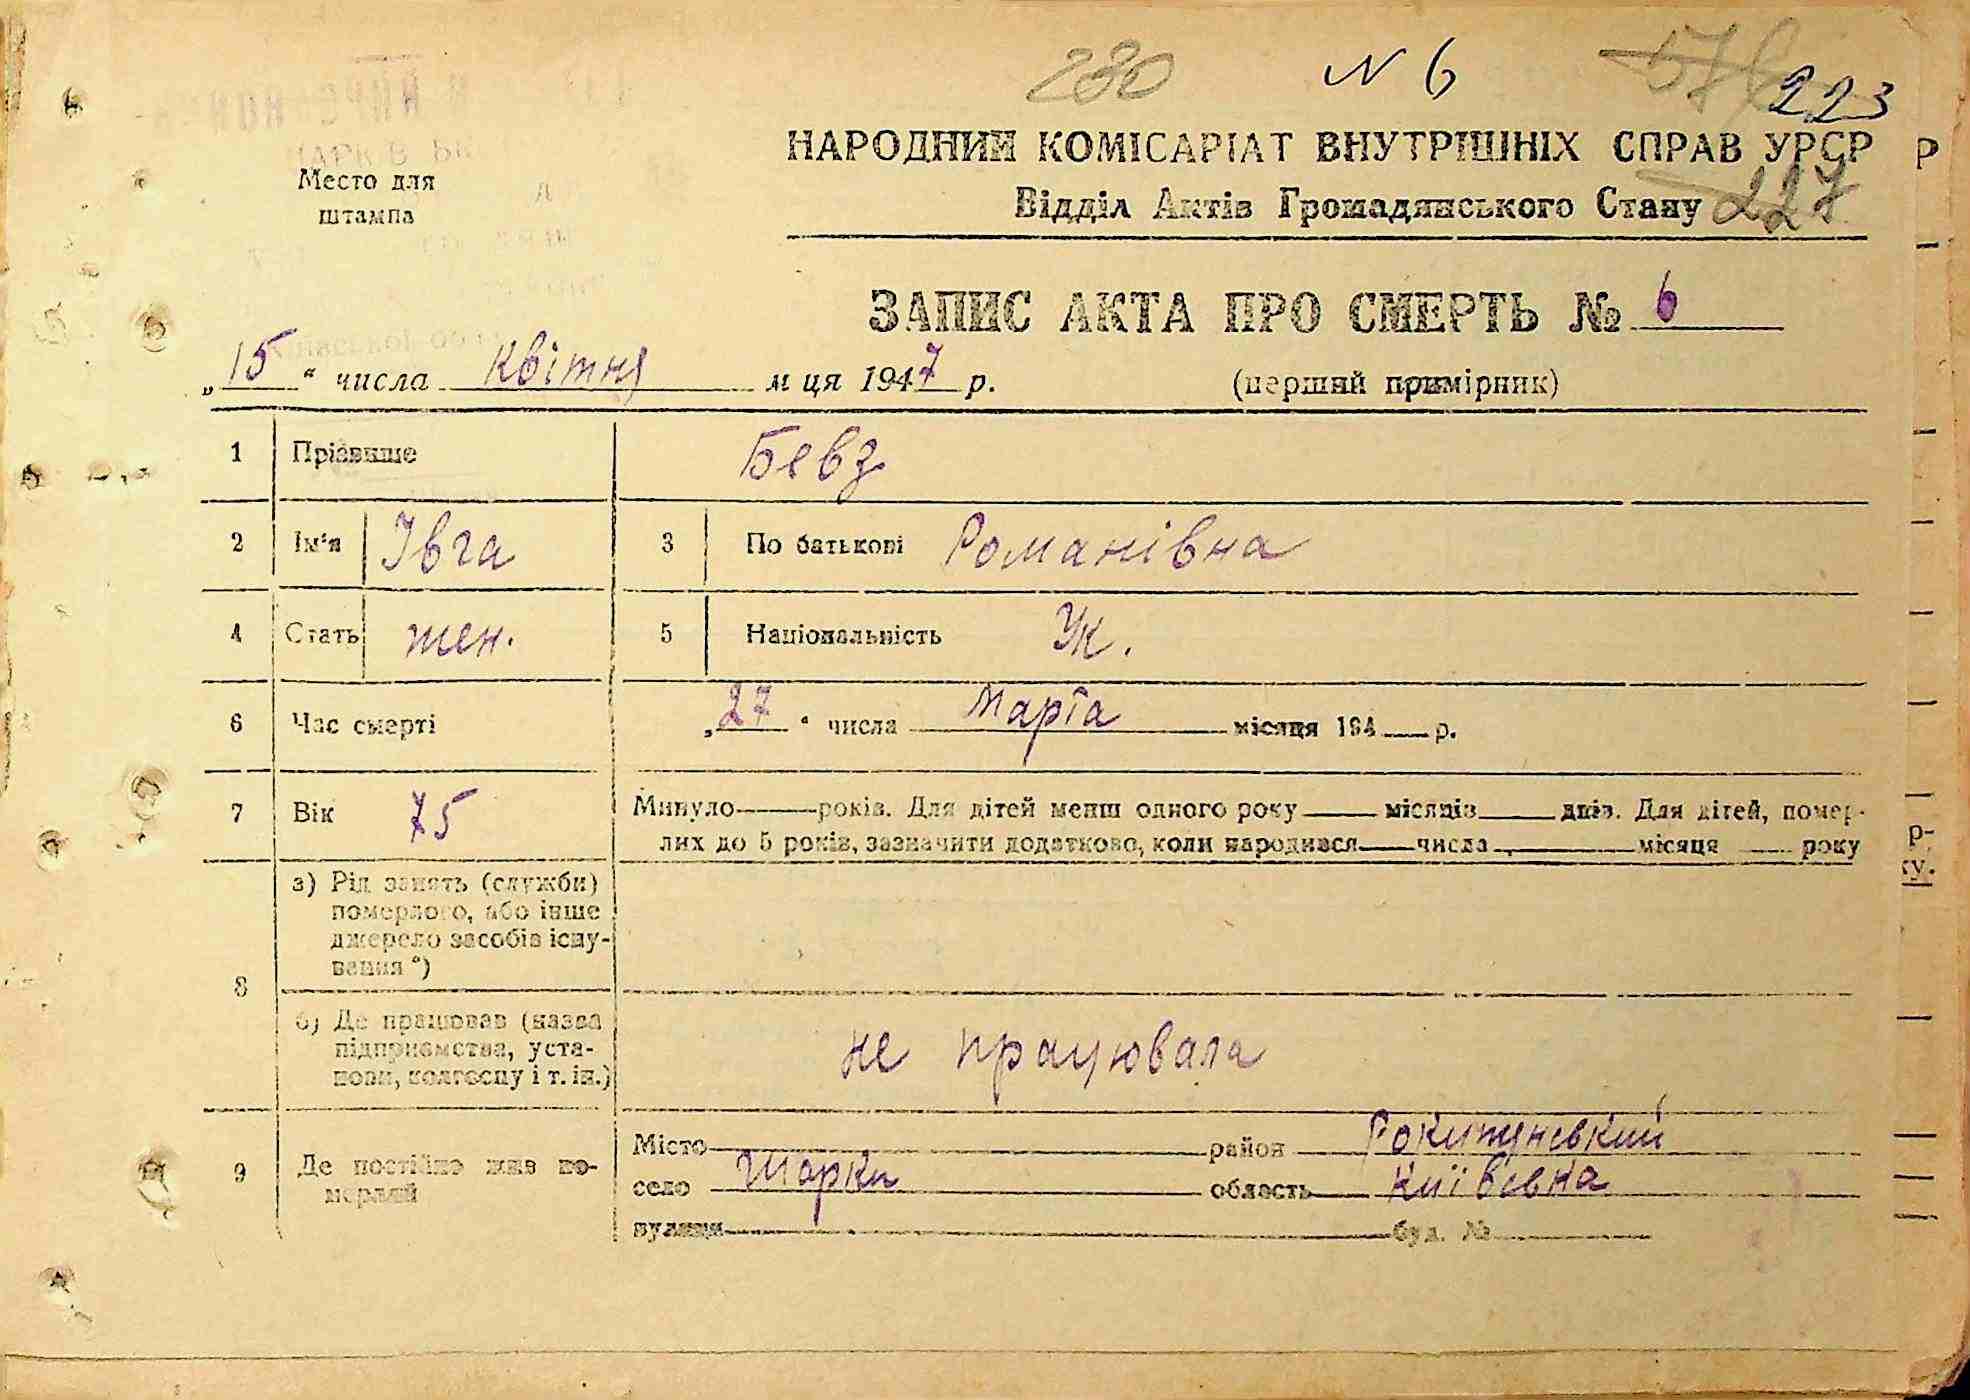 230 N 6 223
НАРОДНИЙ КОМІСАРІАТ ВНУТРІШНІХ СПРАВ УРСР
Место для
штампа
Відділ Актів Громадянського Стану 227
ЗАПИС АКТА ПРО СМЕРТЬ № 6
„15“ числа квітня м ця 1947 р. (перший примірник)
1 Прізвище Бевз
2 Ім'я Івга 3 По батькові Романівна
4 Стать жен. 5 Національність Ук.
6 Час смерті „27“ числа Марта місяця 194 р.
7 Вік 75 Минуло років. Для дітей менш одного року місяців днів. Для дітей, помер-
лих до 5 років, зазначити додатково, коли народився числа місяця року
8 а) Рід занять (служби)
померлого, або інше
джерело засобів існу-
вання *)
б) Де працював (назва
підприємства, уста-
нови, колгоспу і т. ін.) не працювала
9 Де постійно жив по-
мерлий
Місто район Рокитнянський
село Шарки область Київська
вулиця буд. №